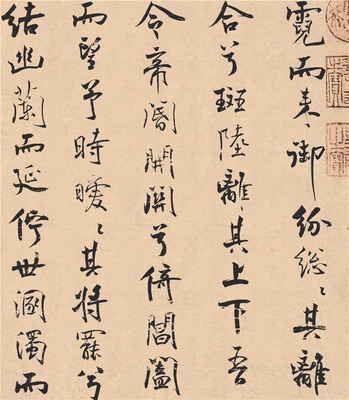 霓而来御紛総〻其離
合兮斑陸離其上下吾
令帝閽開關兮倚閶闔
而望予時曖〻其將罷兮
結幽蘭而延佇世溷濁而